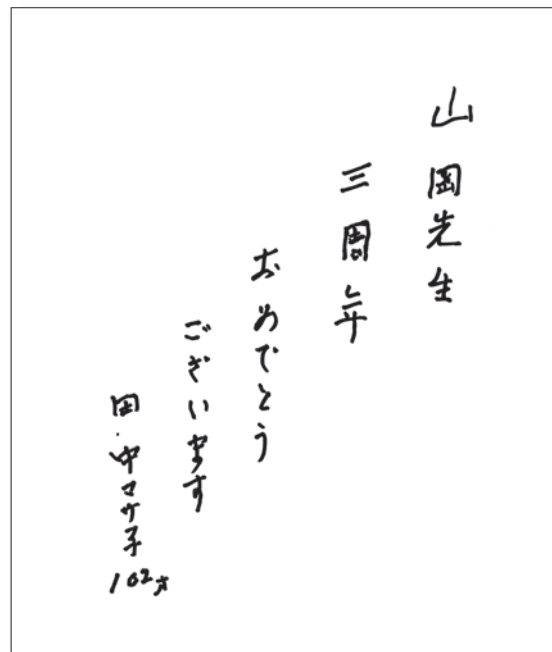 山岡先生
三周年
おめでとう
ございます
田中マサ子
102才